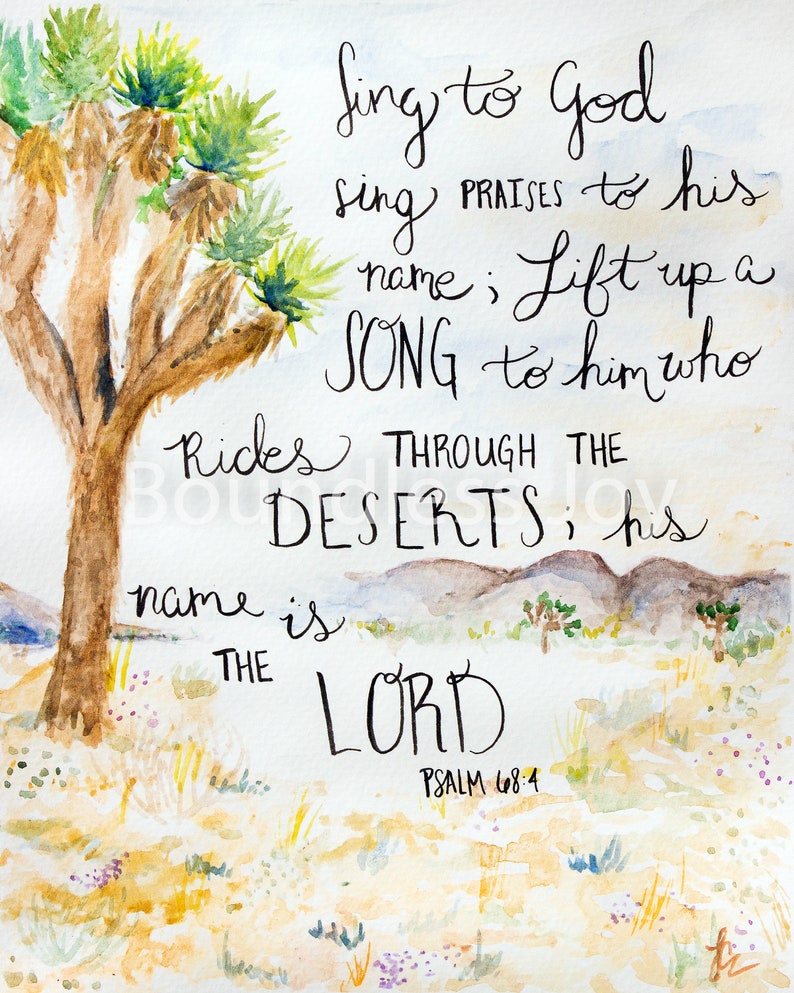 Sing to God
sing PRAISES to his
name; Lift up a
SONG to him who
Rides THROUGH THE
Boundless Joy
DESERTS; his
name is
THE
LORD
PSALM 68:4